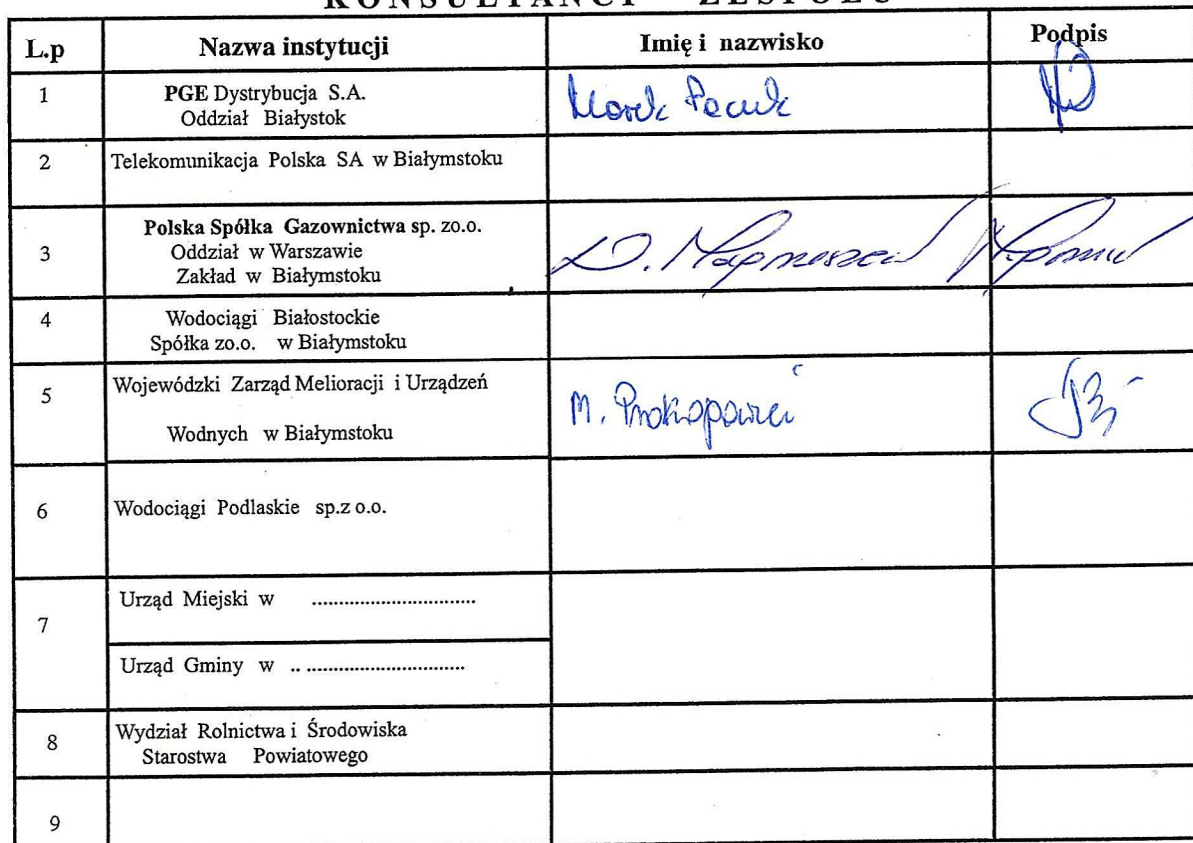 KONSULTANCI ZESPOŁU
L.p Nazwa instytucji Imię i nazwisko Podpis
1 PGE Dystrybucja S.A. Marek
Oddział Białystok
2 Telekomunikacja Polska SA w Białymstoku
3 Polska Spółka Gazownictwa sp. zo.o. D.
Oddział w Warszawie
Zakład w Białymstoku
4 Wodociągi Białostockie
Spółka zo.o. w Białymstoku
5 Wojewódzki Zarząd Melioracji i Urządzeń M.
Wodnych w Białymstoku
6 Wodociągi Podlaskie sp.z o.o.
7 Urząd Miejski w ..............................
Urząd Gminy w .. .............................
8 Wydział Rolnictwa i Środowiska
Starostwa Powiatowego
9